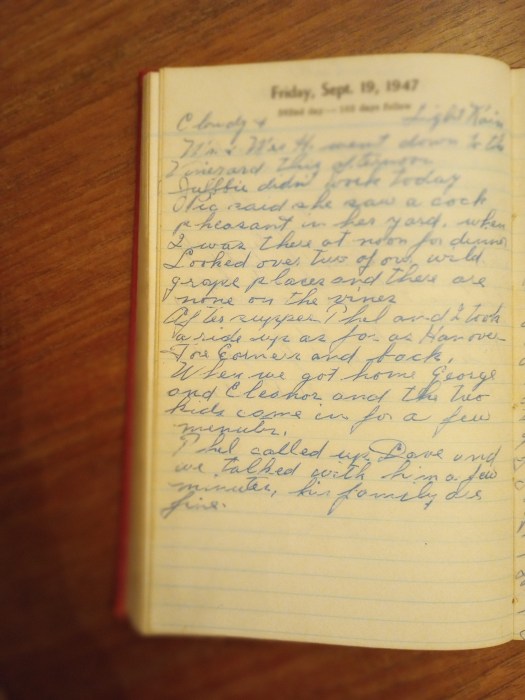 Friday, Sept. 19, 1947
262nd day — 103 days follow
Cloudy & Light Rain
Mr. & Mrs. H. went down to the
Vineyard this afternoon
didn't work today
said she saw a cock
pheasant in her yard, when
I was there at noon for dinner
Looked over two of our wild
grape places and there are
none on the vines
After supper Phel and I took
a ride up as far as Hanover
Four Corners and back.
When we got home George
and Eleanor and the two
kids came in for a few
minutes.
Phel called up Dave and
we talked with him a few
minutes, his family are
fine.